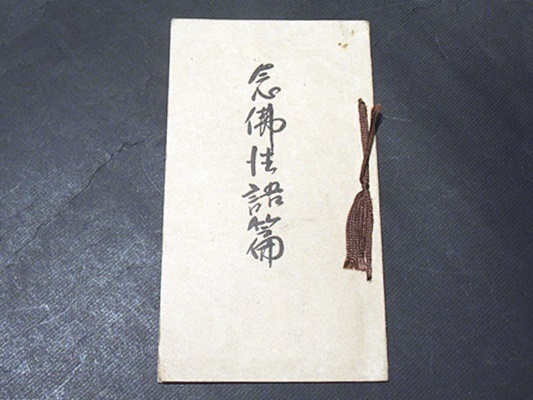 念佛法語篇